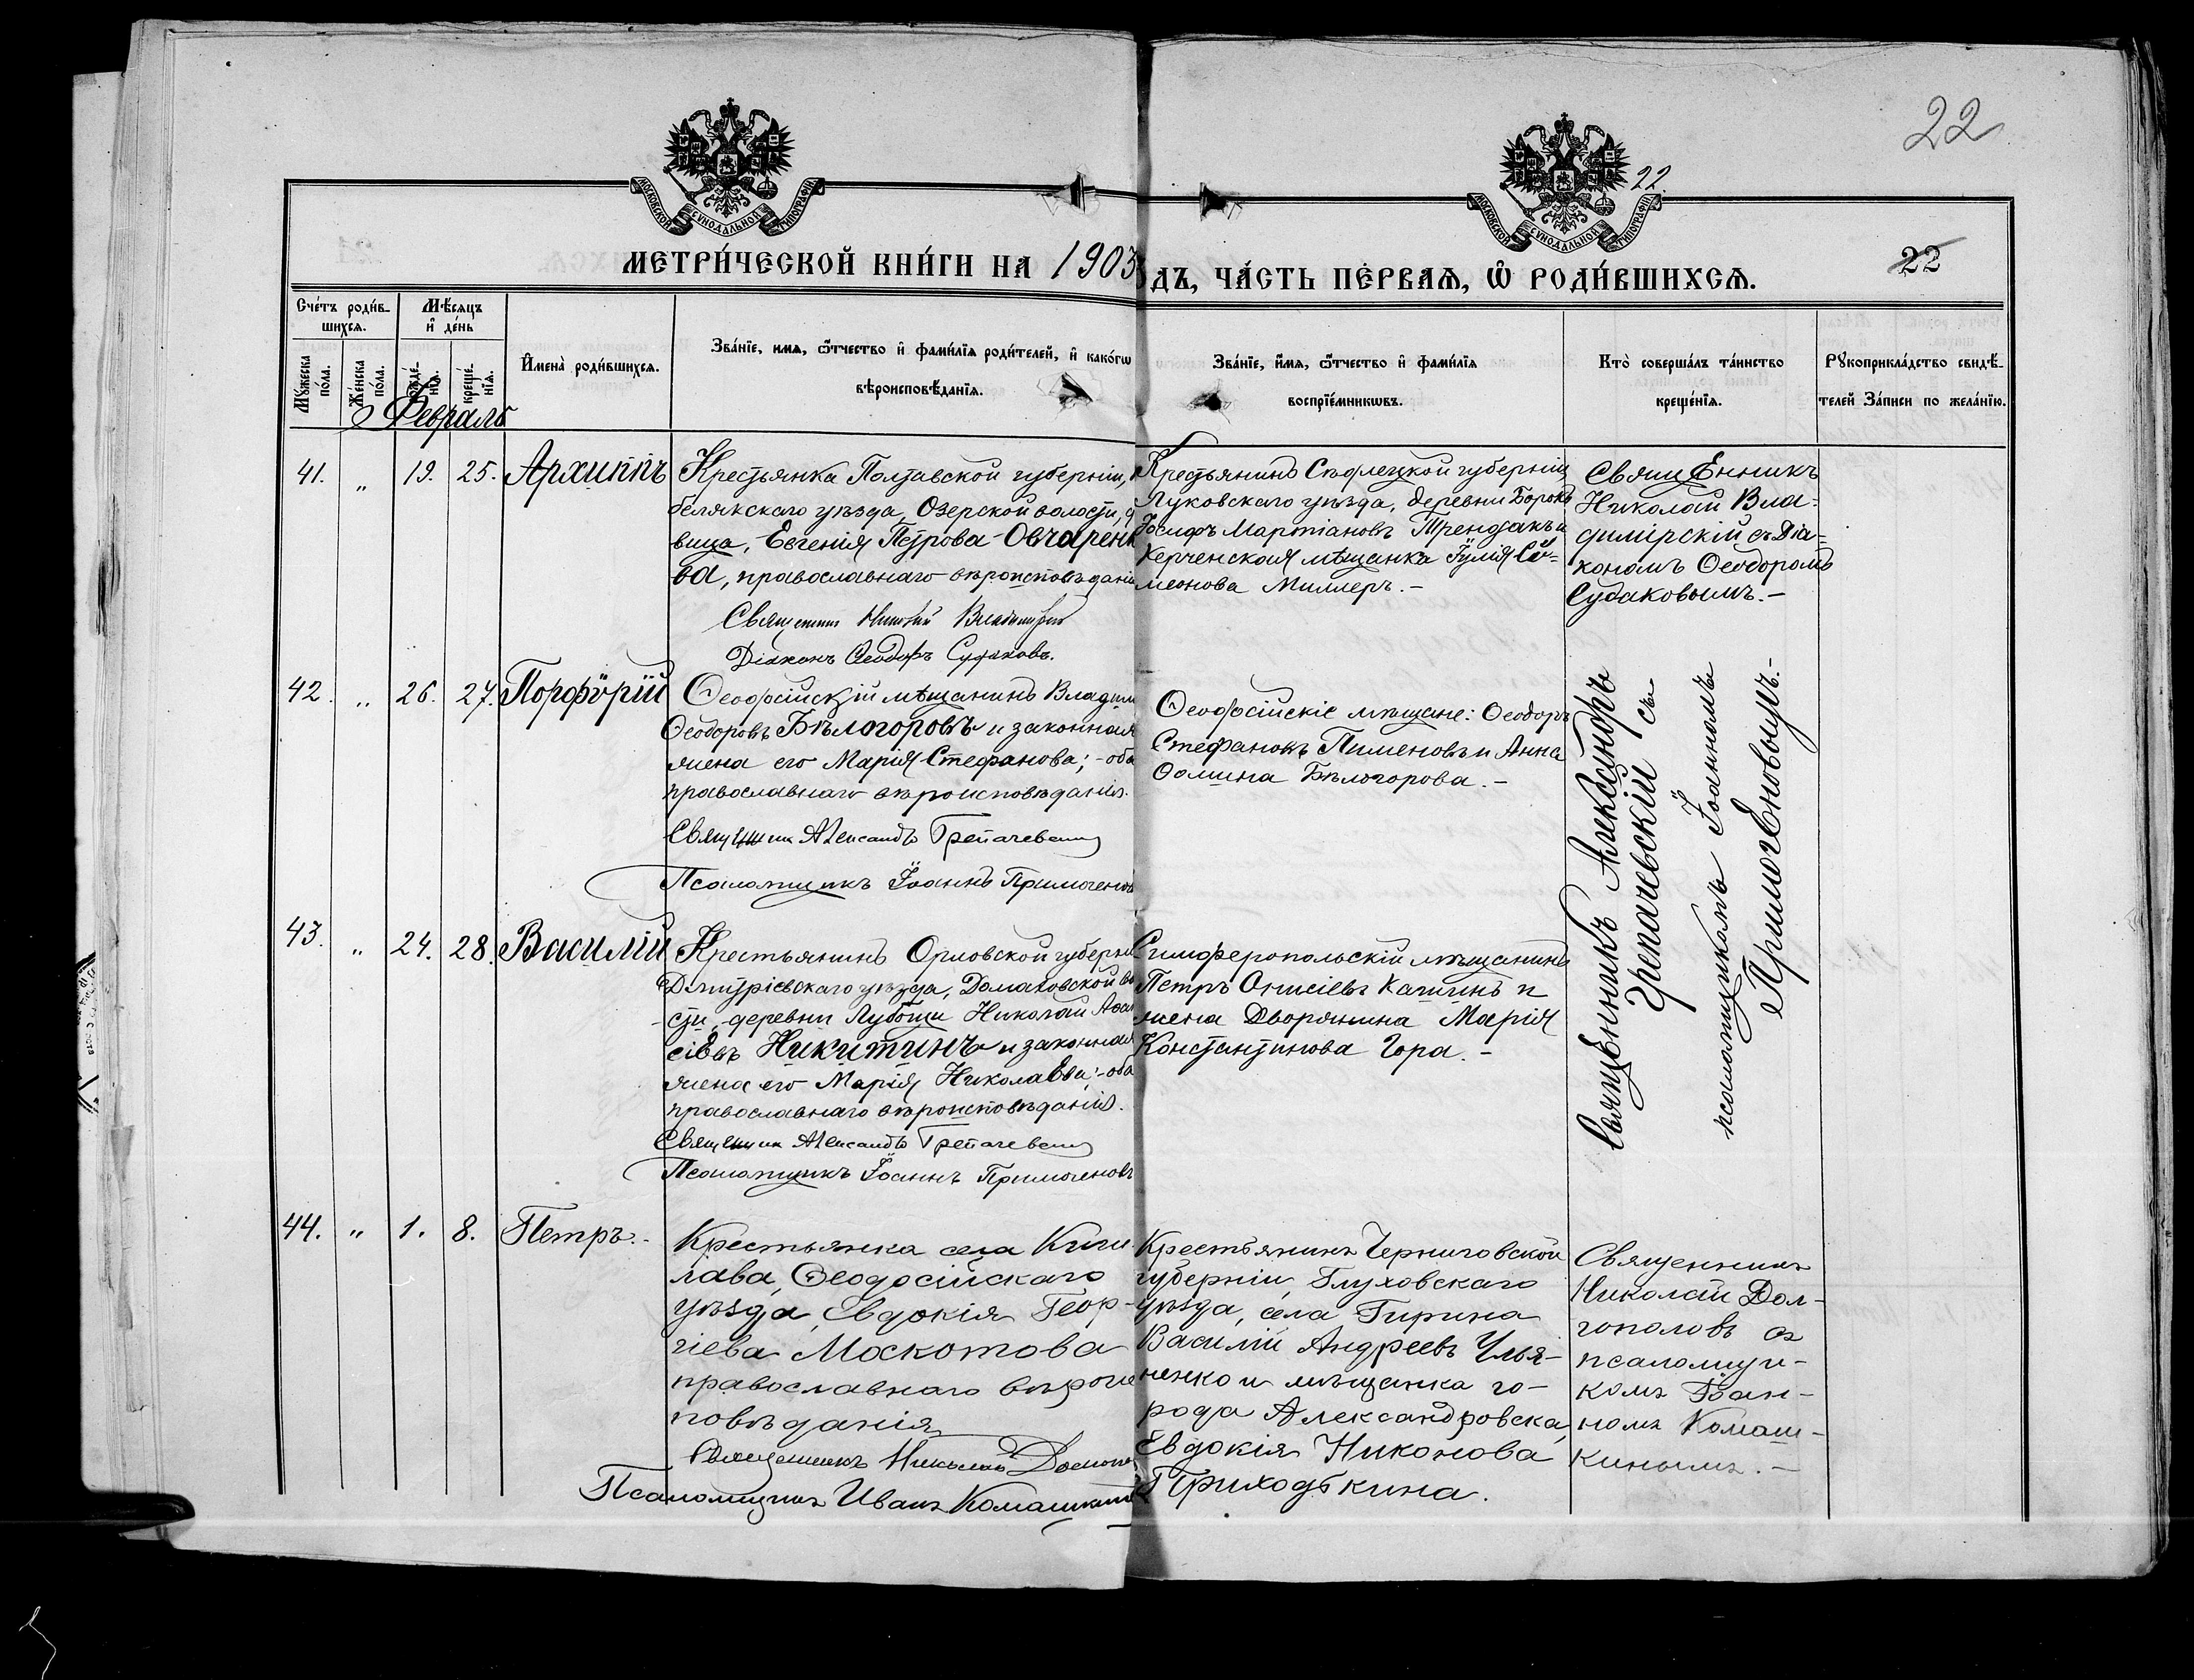 22
22.
МОСКОВСКОЙ СѴНОДАЛЬНОЙ ТИПОГРАФІИ
МОСКОВСКОЙ СѴНОДАЛЬНОЙ ТИПОГРАФІИ
МЕТРИ́ЧЕСКОЙ КНИ́ГИ НА 1903
ДЪ, ЧА́СТЬ ПЕ́РВАЯ, Ѡ РОДИ́ВШИХСЯ.
22
Сче́тъ роди́в-
шихся.
Мꙋ́жеска по́ла.
Же́нска по́ла.
Мѣ́сяцъ
и҆ де́нь
рожде́нїя.
креще́нїя.
И҆мена̀ роди́вшихся.
Зва́нїе, имѧ, ѻ҆́тчество и҆ фами́лїя роди́телей, и҆ како́гѡ
вѣроисповѣ́данїя.
Зва́нїе, и҆́мѧ, ѻ҆́тчество и҆ фами́лїя
воспрїе́мникѡвъ.
Кто̀ соверша́лъ та́инство
креще́нїя.
Рꙋкоприкла́дство свидѣ́-
телей За́писи по жела́нїю.
Февраль
41. " 19. 25. Архиппъ
Крестьянка Полтавской губерніи,
белякскаго уѣзда, Озерской волости, д
вица, Евгенія Петрова Овчаренк
ва, православнаго вѣроисповѣданія
Діаконъ Ѳеодоръ Судаковъ.
Крестьянинъ Сѣдлецкой губерніи
Луковскаго уѣзда, деревни Борокъ
Іосифъ Мартіановъ и
Керченская мѣщанка Іулія Си-
меонова Миллеръ. -
Священникъ
Николай Вла-
димірскій съ Діа-
кономъ Ѳеодоромъ
Судаковымъ. -
42. " 26. 27. Порфѵрій
Ѳеодосійскій мѣщанинъ Владим
Ѳеодоровъ Бѣлогоровъ и законная
жена его Марія Стефанова; - оба
православнаго вѣроисповѣданія.
Священникъ Александръ Грепачевскій
Псаломщикъ Іоаннъ Примоченов
Ѳеодосійскіе мѣщане: Ѳеодоръ
Стефановъ Пименовъ и Анна
Ѳомина Бѣлогорова. -
Священникъ Александръ
Грепачевскій съ
псаломщикомъ Іоанномъ
Примоченовымъ. -
43. " 24. 28. Василій
Крестьянинъ Орловской губерні
Дмитріевскаго уѣзда, Домаховской во
сти, деревни Николай
сіевъ Никитинъ и законная
жена его Марія Николаева; - оба
православнаго вѣроисповѣданія.
Священникъ Александръ Грепачевскій
Псаломщикъ Іоаннъ Примоченовъ
Симферопольскій мѣщанинъ
Петръ Онисіевъ и
жена Дворянина Марія
Константинова Гора. -
44. " 1. 8. Петръ. -
Крестьянка села Кизи
лава, Ѳеодосійскаго
уѣзда, Евдокія Геор-
гіева Москотова
православнаго вѣроис
повѣданія
Священникъ Николай Долгопол
Псаломщикъ Иванъ Комашкинъ
Крестьянинъ Черниговской
губерніи, Глуховскаго
уѣзда, села Гирина
Василій Андреевъ Улья-
ненко и мѣщанка го-
рода Александровска,
Евдокія Никонова
Приходькина.
Священникъ
Николай Дол-
гополовъ съ
псаломщи-
комъ Іоан-
номъ Комаш-
кинымъ. -